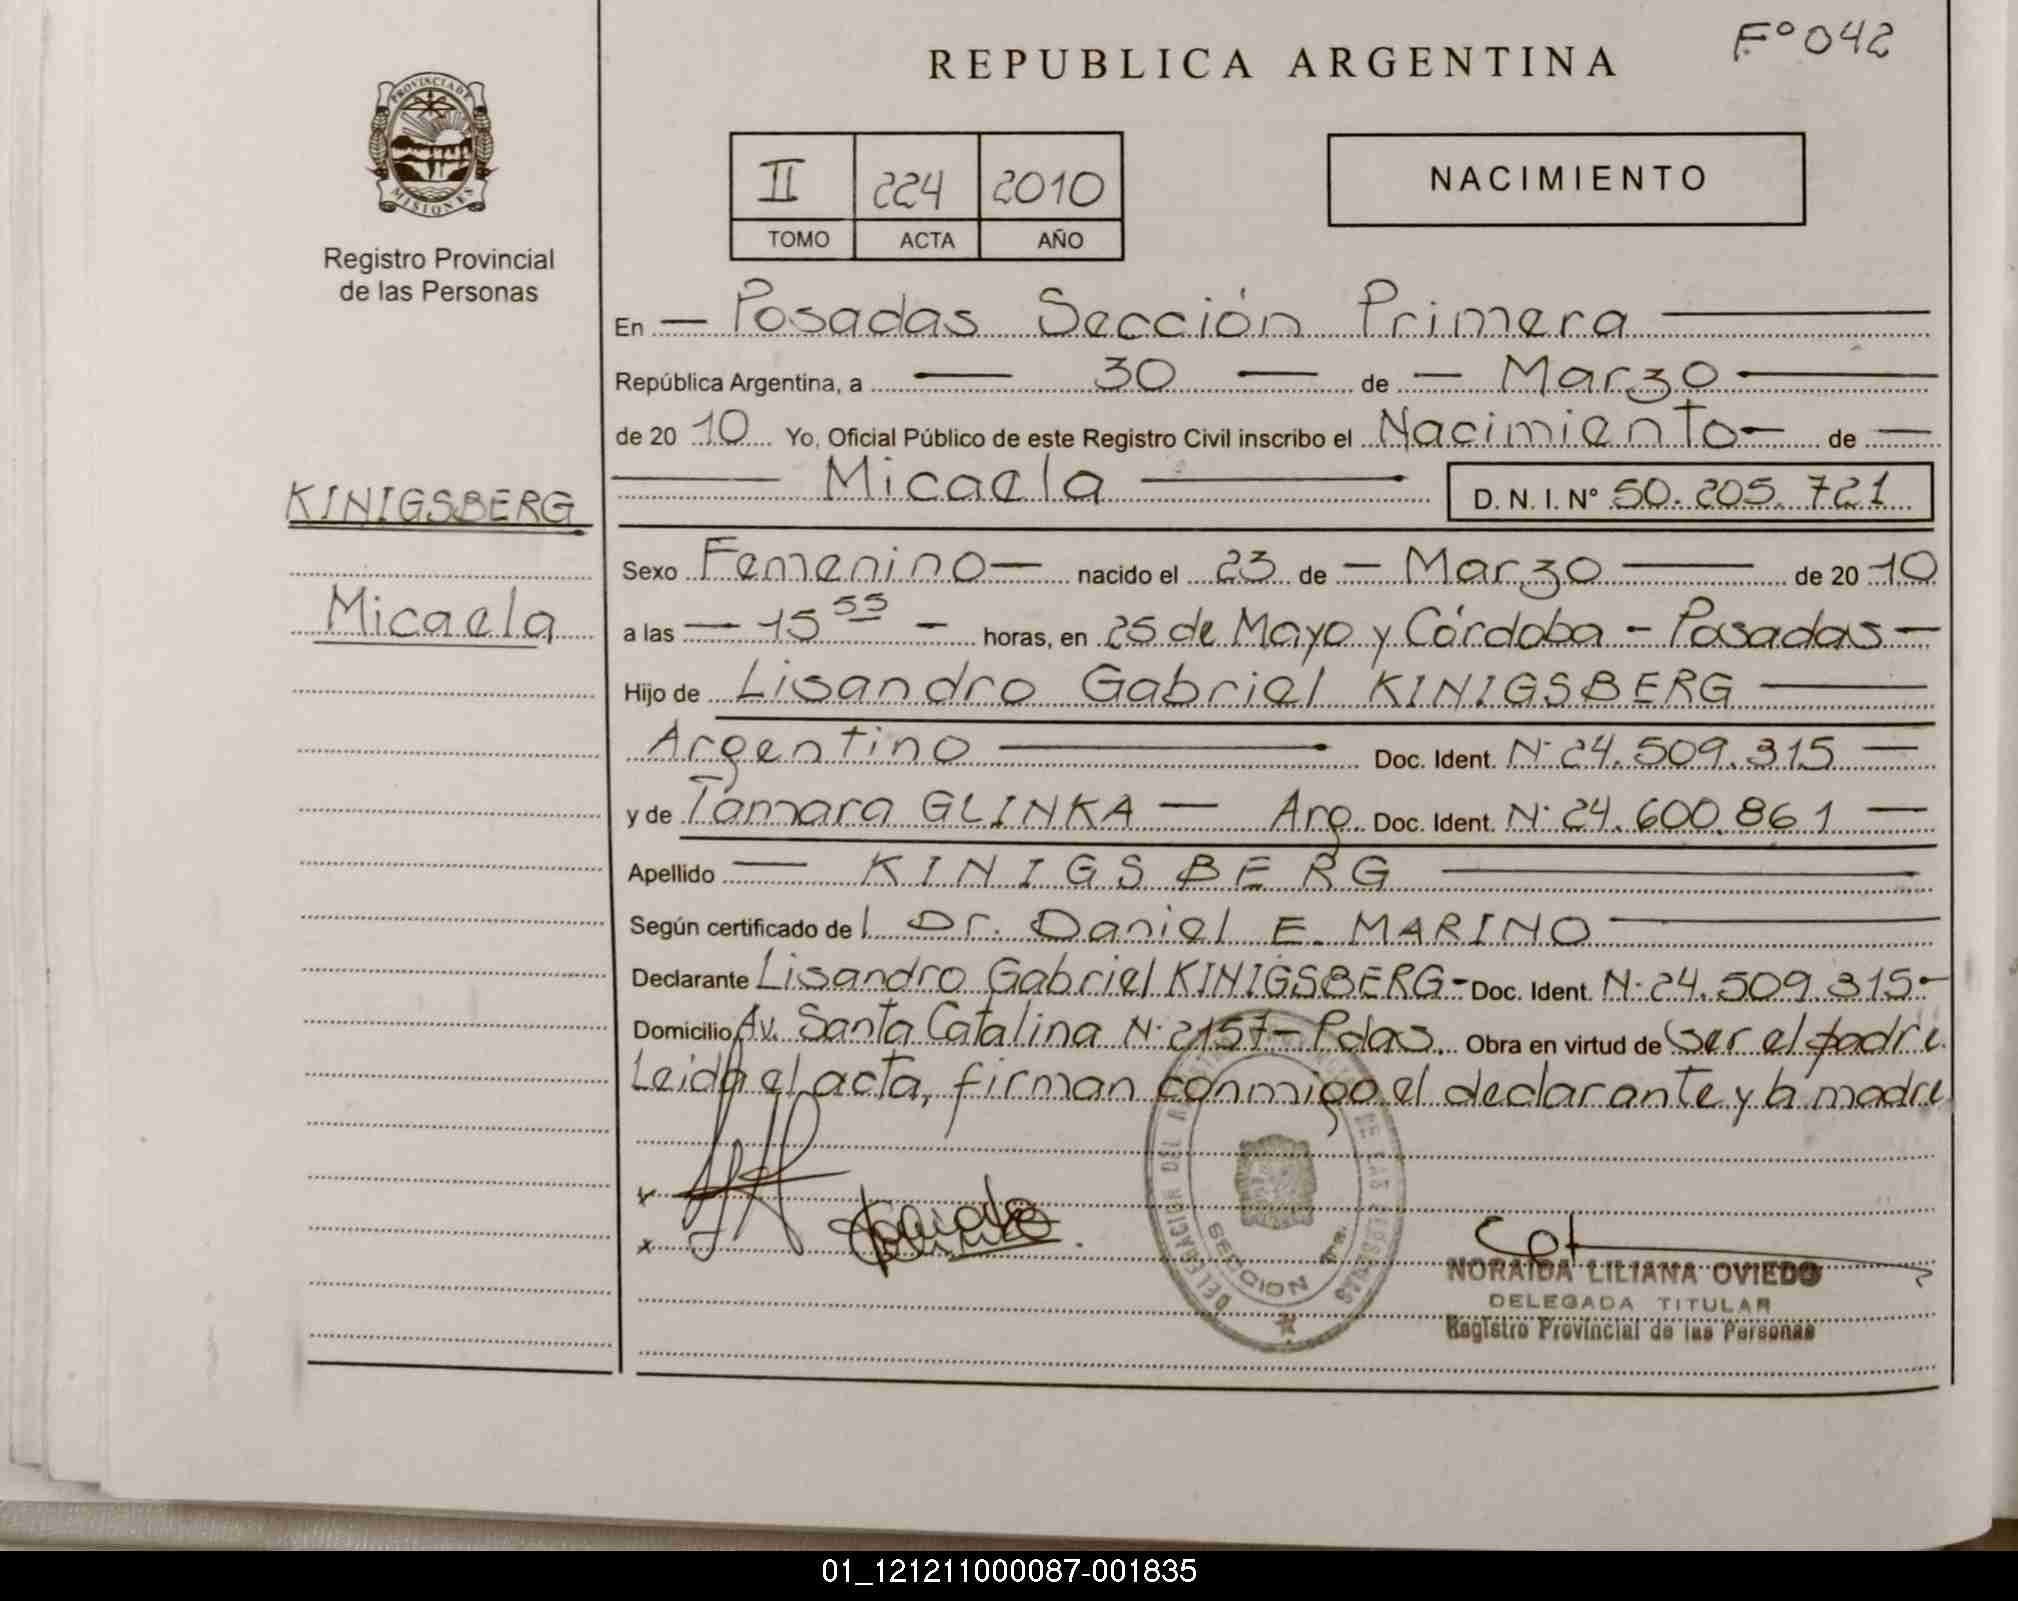 F° 042
REPUBLICA ARGENTINA
PROVINCIA DE
MISIONES
Registro Provincial
de las Personas
II 224 2010
TOMO ACTA AÑO
NACIMIENTO
En Posadas Sección Primera
República Argentina, a 30 de Marzo
de 2010 Yo, Oficial Público de este Registro Civil inscribo el Nacimiento de
Micaela D. N. I. N° 50.205.721
KINIGSBERG
Micaela
Sexo Femenino nacido el 23 de Marzo de 2010
a las 15 55 horas, en 25 de Mayo y Córdoba - Posadas
Hijo de Lisandro Gabriel KINIGSBERG
Argentino Doc. Ident. N° 24.509.315
y de Tamara GLINKA Arg. Doc. Ident. N° 24.600.861
Apellido KINIGSBERG
Según certificado de l Dr. Daniel E. MARINO
Declarante Lisandro Gabriel KINIGSBERG - Doc. Ident. N° 24.509.315
Domicilio Av. Santa Catalina N° 2157 - Pdas. Obra en virtud de Ser el padre.
Leida el acta, firman conmigo el declarante y la madre
DELEGACION DEL DE LAS PERSONAS
SECCION 1ra.
NORAIDA LILIANA OVIEDO
DELEGADA TITULAR
Registro Provincial de las Personas
01_121211000087-001835